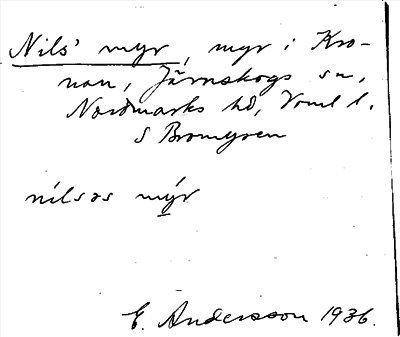 Nils' myr, myr i Kro-
nan, Järnskogs sn,
Nordmarks hd, Vrml l.
S Bromyren
nílsəs mýr
E. Andersson 1936.